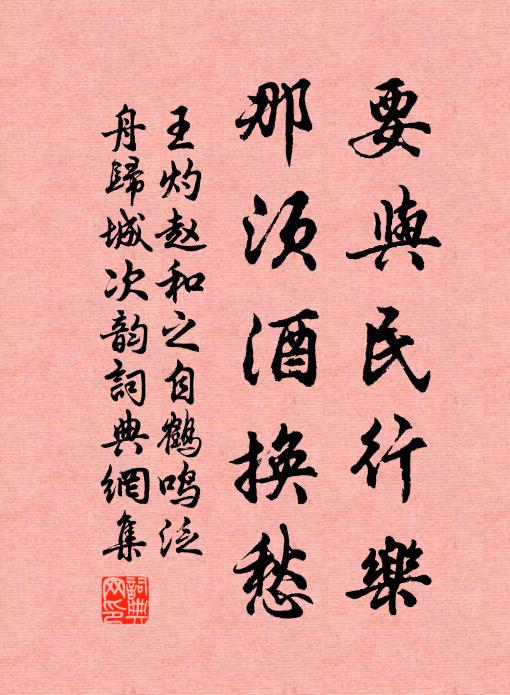 要與民行樂
那須酒換愁
王灼赵和之自鶴鸣泛
舟歸城次韵詞典網集
詞典网印